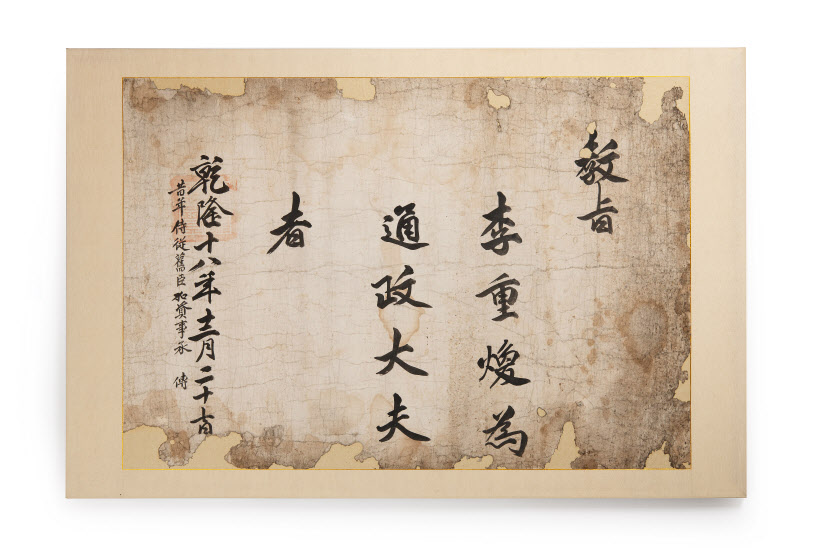 敎旨
李重煥為
通政大夫
者
乾隆十八年十二月二十日
昔年侍從舊臣加資事承 傳